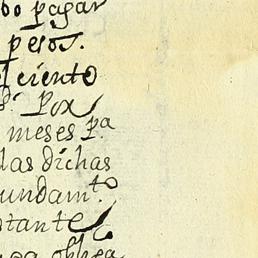 bo pagar
pesos.
ciento
Por
meses pa
las dichas
undamto.
tante